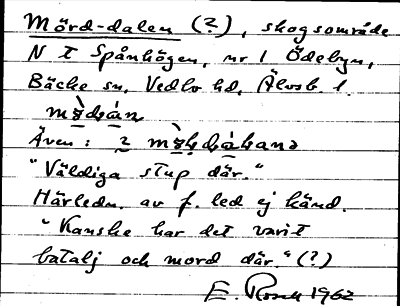 Mörd-dalen (?), skogsområde
N I Spånhögen, nr 1 Ödebyn,
Bäcke sn, Vedbo hd, Älvsb. l.
Även: 2
"Väldiga stup där."
Härledn. av f. led ej känd.
"Kanske har det varit
batalj och mord där." (?)
E. Rosell 1962